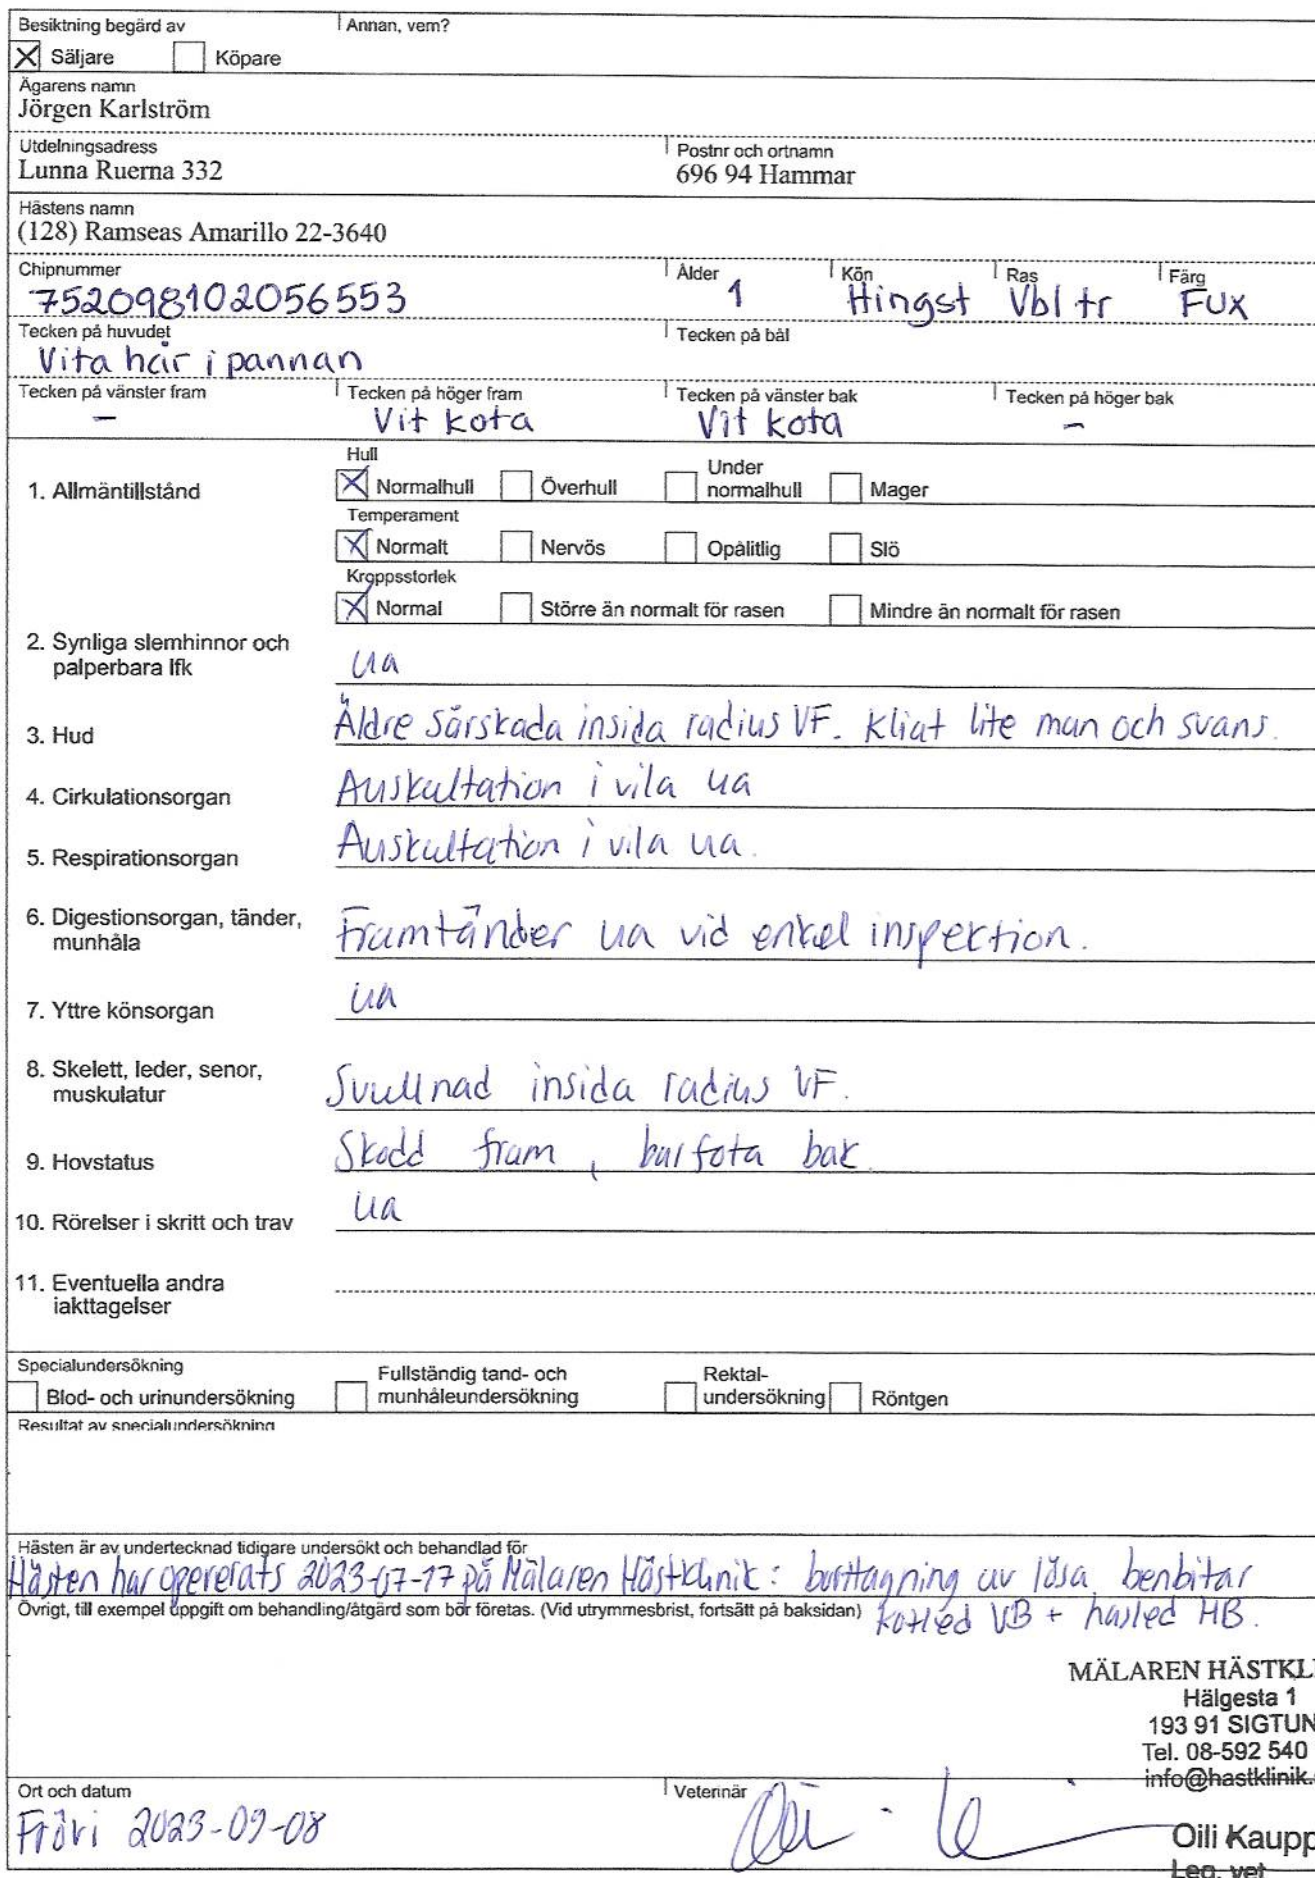 Besiktning begärd av Annan, vem?
X Säljare Köpare
Ägarens namn
Jörgen Karlström
Utdelningsadress Postnr och ortnamn
Lunna Ruerna 332 696 94 Hammar
Hästens namn
(128) Ramseas Amarillo 22-3640
Chipnummer Ålder Kön Ras Färg
752098102056553 1 Hingst Vbl tr FUX
Tecken på huvudet Tecken på bål
Vita hår i pannan
Tecken på vänster fram Tecken på höger fram Tecken på vänster bak Tecken på höger bak
- Vit kota Vit kota -
Hull
1. Allmäntillstånd X Normalhull Överhull Under normalhull Mager
Temperament
X Normalt Nervös Opålitlig Slö
Kroppsstorlek
X Normal Större än normalt för rasen Mindre än normalt för rasen
2. Synliga slemhinnor och
palperbara lfk ua
3. Hud Äldre sårskada insida radius VF. Kliat lite man och svans.
4. Cirkulationsorgan Auskultation i vila ua
5. Respirationsorgan Auskultation i vila ua.
6. Digestionsorgan, tänder,
munhåla Framtänder ua vid enkel inspektion.
7. Yttre könsorgan ua
8. Skelett, leder, senor,
muskulatur Svullnad insida radius VF.
9. Hovstatus Skodd fram, barfota bak.
10. Rörelser i skritt och trav ua
11. Eventuella andra
iakttagelser
Specialundersökning
Blod- och urinundersökning Fullständig tand- och munhåleundersökning Rektal-undersökning Röntgen
Resultat av specialundersökning
Hästen är av undertecknad tidigare undersökt och behandlad för
Hästen har opererats 2023-07-17 på Mälaren Hästklinik: borttagning av lösa benbitar
Övrigt, till exempel uppgift om behandling/åtgärd som bör företas. (Vid utrymmesbrist, fortsätt på baksidan) kotled VB + hasled HB.
MÄLAREN HÄSTKL
Hälgesta 1
193 91 SIGTUN
Tel. 08-592 540
info@hastklinik.
Ort och datum Veterinär
Frövi 2023-09-08
Oili Kaupp
Leg. vet